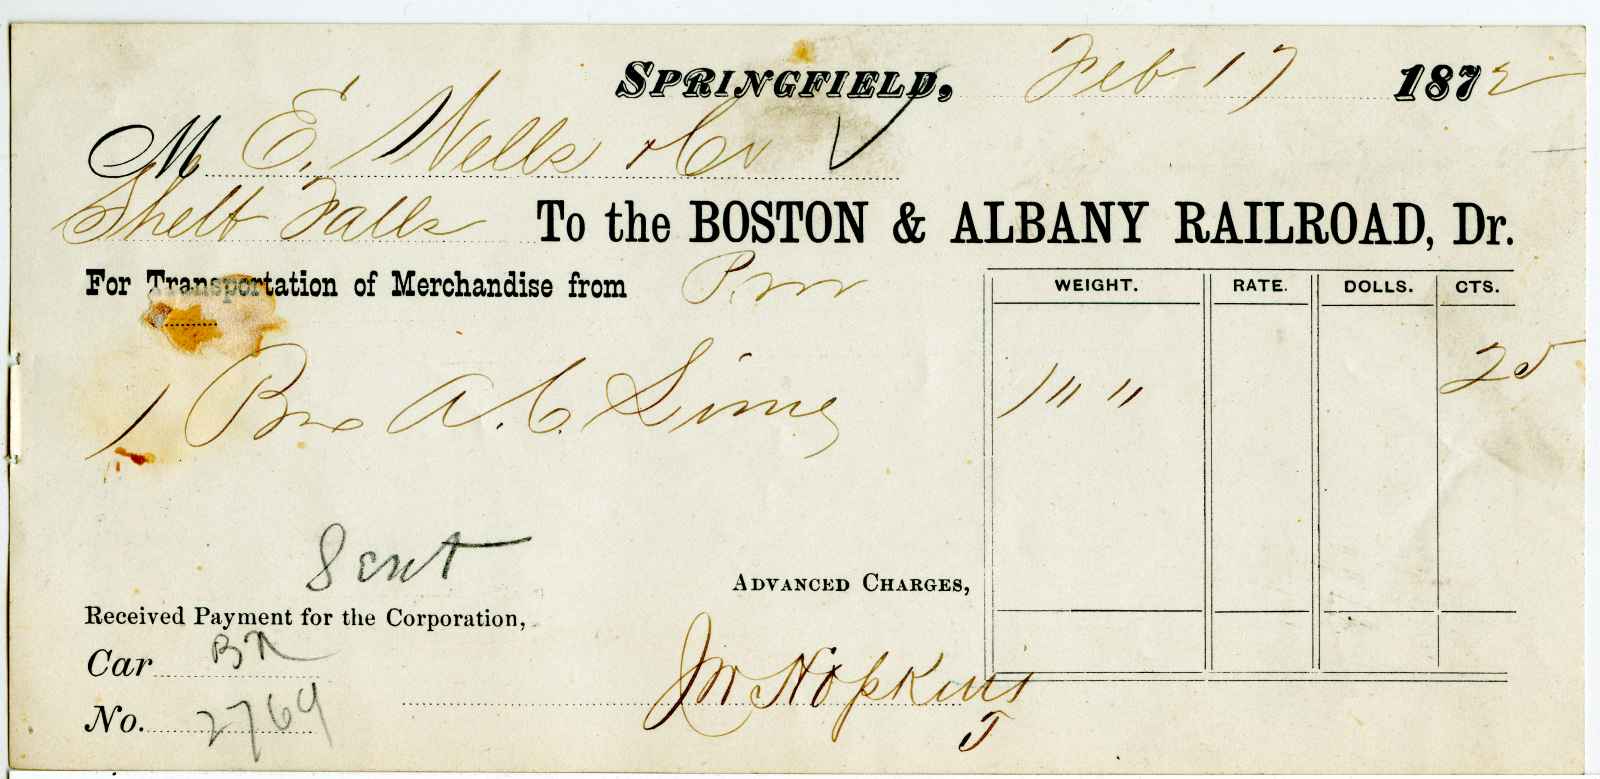 SPRINGFIELD, Feb 17 1872
M E. Wells & Co
Shelb Falls To the BOSTON & ALBANY RAILROAD, Dr.
For Transportation of Merchandise from
WEIGHT. RATE. DOLLS. CTS.
1 Box A. C. 1 " " 25
Sent
ADVANCED CHARGES,
Received Payment for the Corporation,
Car
No. 2769
JW Hopkins
T